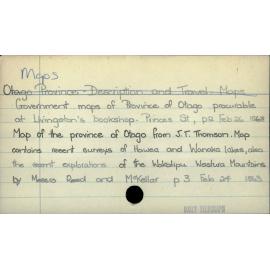 Maps
Otago Province - Description and Travel - Maps
Government maps of Province of Otago procurable
at Livingston's bookshop. Princes St, p2 Feb 26 1863
Map of the province of Otago from J.T. Thomson. Map
contains recent surveys of Hawea and Wanaka lakes, also
the recent explorations of the Wakatipu Western Mountains
by Messrs and McKellar p 3 Feb 24 1863
DAILY TELEGRAPH